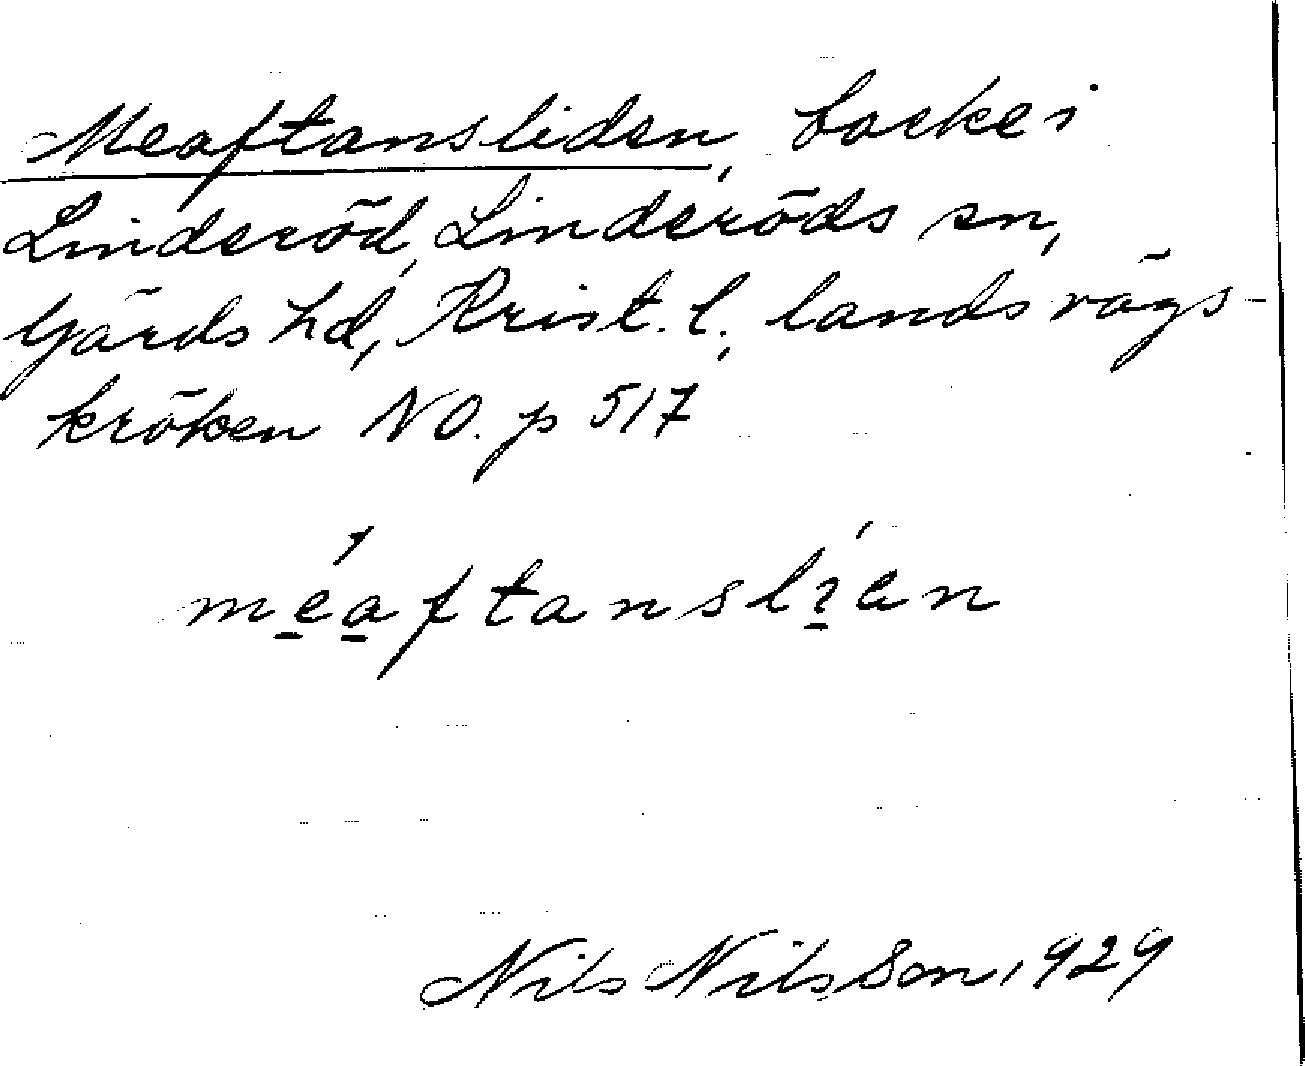 Meaftansliden, backe i
Linderöd, Linderöds sn,
Gärds hd, Krist. l., landsvägs-
kröken NO. p 517
méaftanslíen
Nils Nilsson, 1929